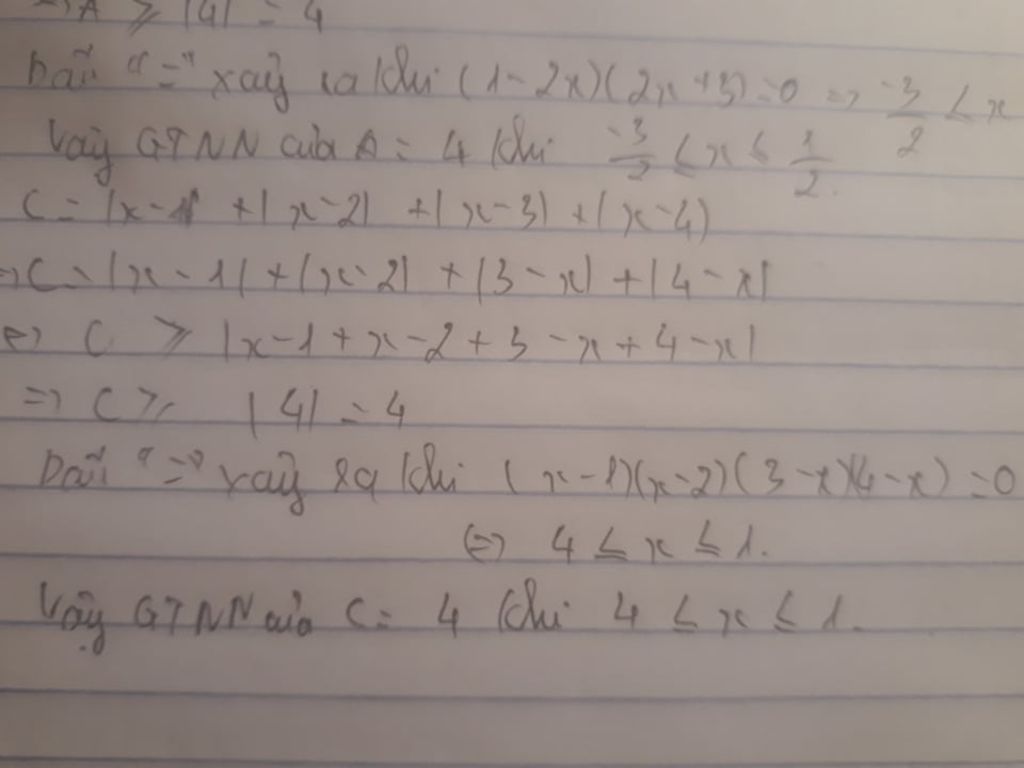 => A ≥ |4| = 4
Dấu "=" xảy ra khi (1-2x)(2x+3)=0 => -3/2 ≤ x
Vậy GTNN của A = 4 khi -3/2 ≤ x ≤ 1/2.
C = |x-1| + |x-2| + |x-3| + |x-4|
=> C = |x-1| + |x-2| + |3-x| + |4-x|
<=> C ≥ |x-1+x-2+3-x+4-x|
=> C ≥ |4| = 4
Dấu "=" xảy ra khi (x-1)(x-2)(3-x)(4-x) = 0
<=> 4 ≤ x ≤ 1.
Vậy GTNN của C = 4 khi 4 ≤ x ≤ 1.